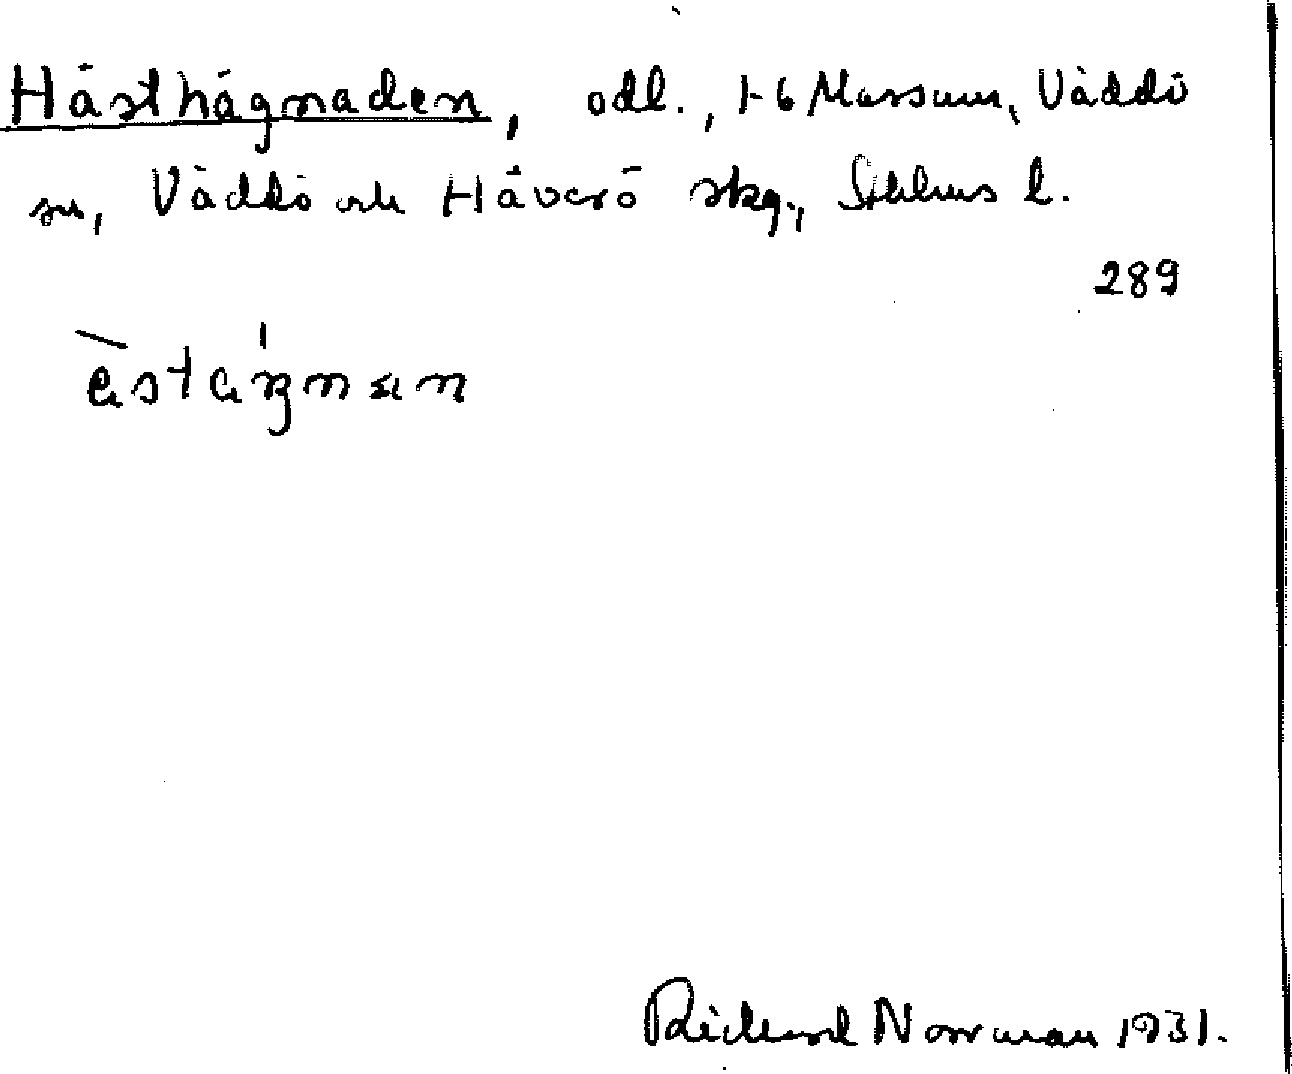 Hästhägnaden, odl., 1-6 Massum, Väddö
sn, Väddö och Häverö skg., Sthlms l.
289
Rickard Norrman 1931.